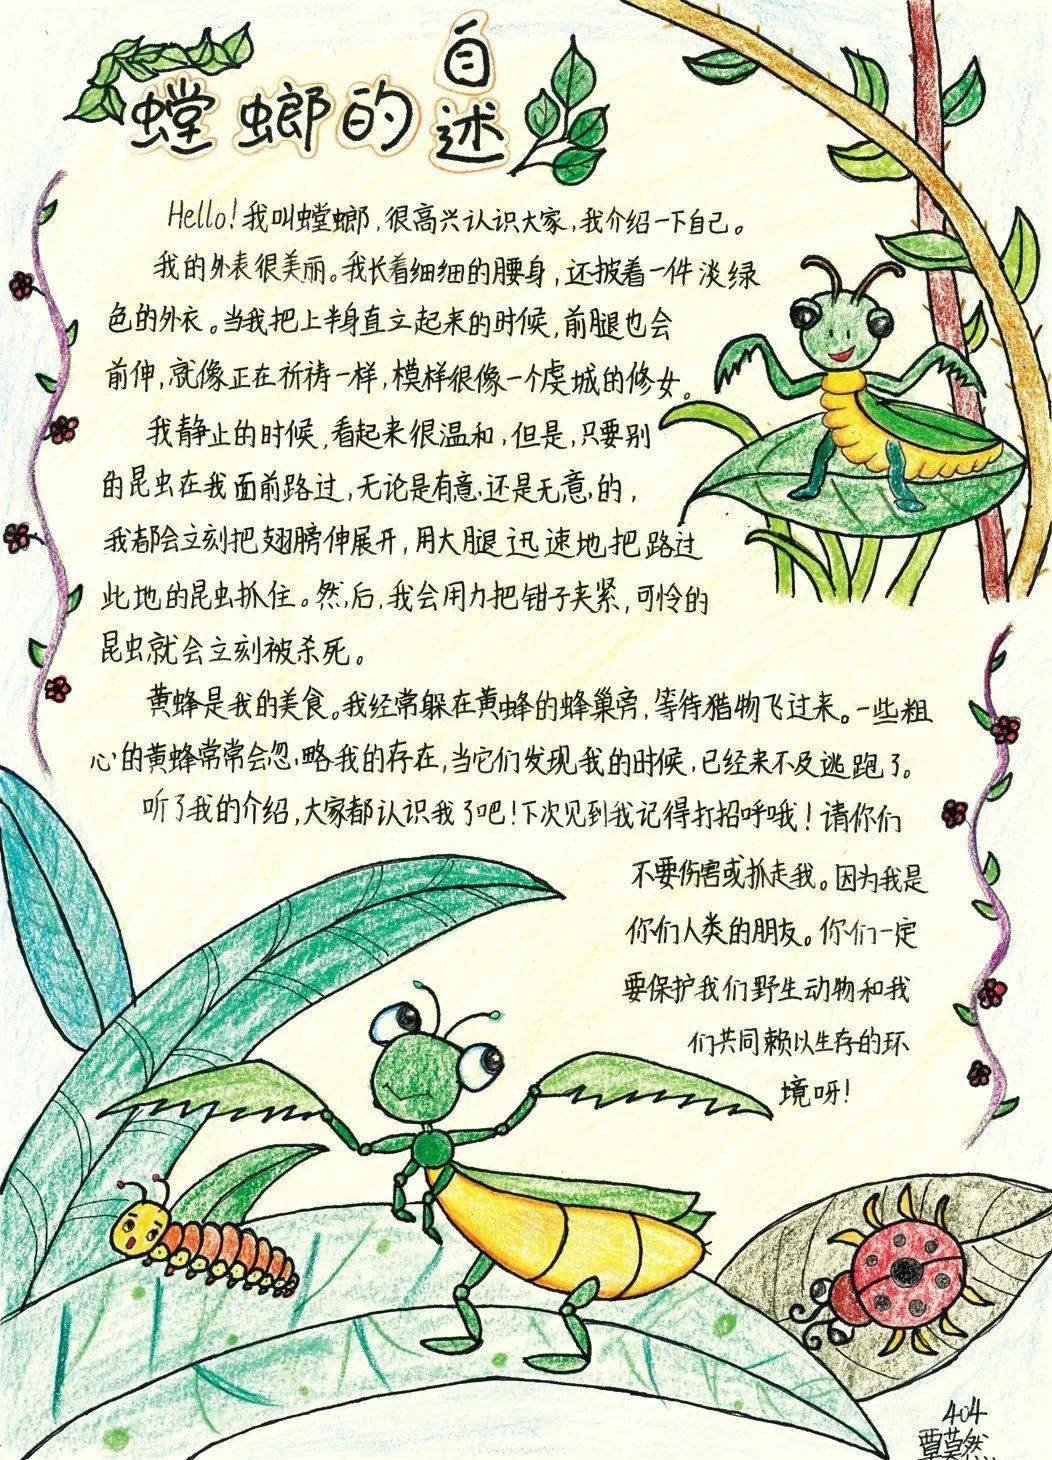 螳螂的自述
Hello!我叫螳螂,很高兴认识大家,我介绍一下自己。
我的外表很美丽。我长着细细的腰身,还披着一件淡绿
色的外衣。当我把上半身直立起来的时候,前腿也会
前伸,就像正在祈祷一样,模样很像一个虔城的修女。
我静止的时候,看起来很温和,但是,只要别
的昆虫在我面前路过,无论是有意,还是无意,的,
我都会立刻把翅膀伸展开,用大腿迅速地把路过
此地的昆虫抓住。然后,我会用力把钳子夹紧,可怜的
昆虫就会立刻被杀死。
黄蜂是我的美食。我经常躲在黄蜂的蜂巢旁,等待猎物飞过来。一些粗
心的黄蜂常常会忽略我的存在,当它们发现我的时候,已经来不及逃跑了。
听了我的介绍,大家都认识我了吧!下次见到我记得打招呼哦!请你们
不要伤害或抓走我。因为我是
你们人类的朋友。你们一定
要保护我们野生动物和我
们共同赖以生存的环
境呀!
404
覃莫然